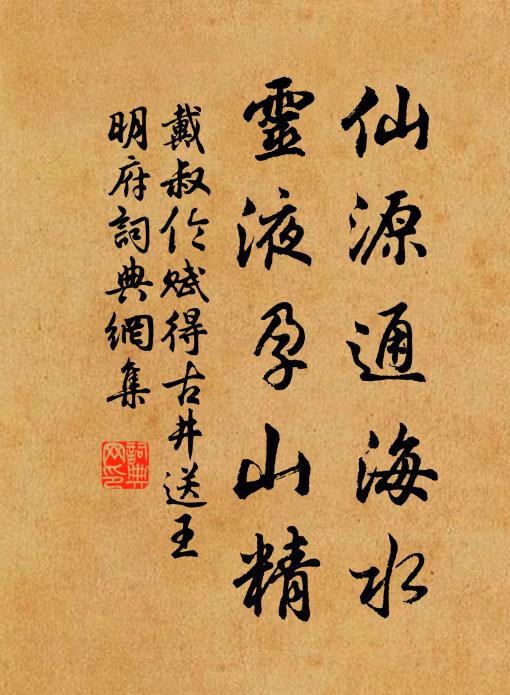 仙源通海水
靈液孕山精
戴叔伦赋得古井送王
明府詞典網集
詞典网印